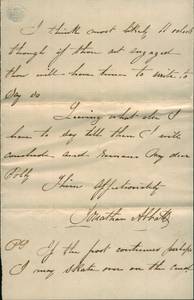 I think most likely
though if thou art engaged
thou will have time to write to
say so
Leaving what else I
have to say till then I will
conclude and remain my dear
Polly
Thine affectionately
Jonathan Abbatt
PS If the post continues perhaps
I may skate over on the